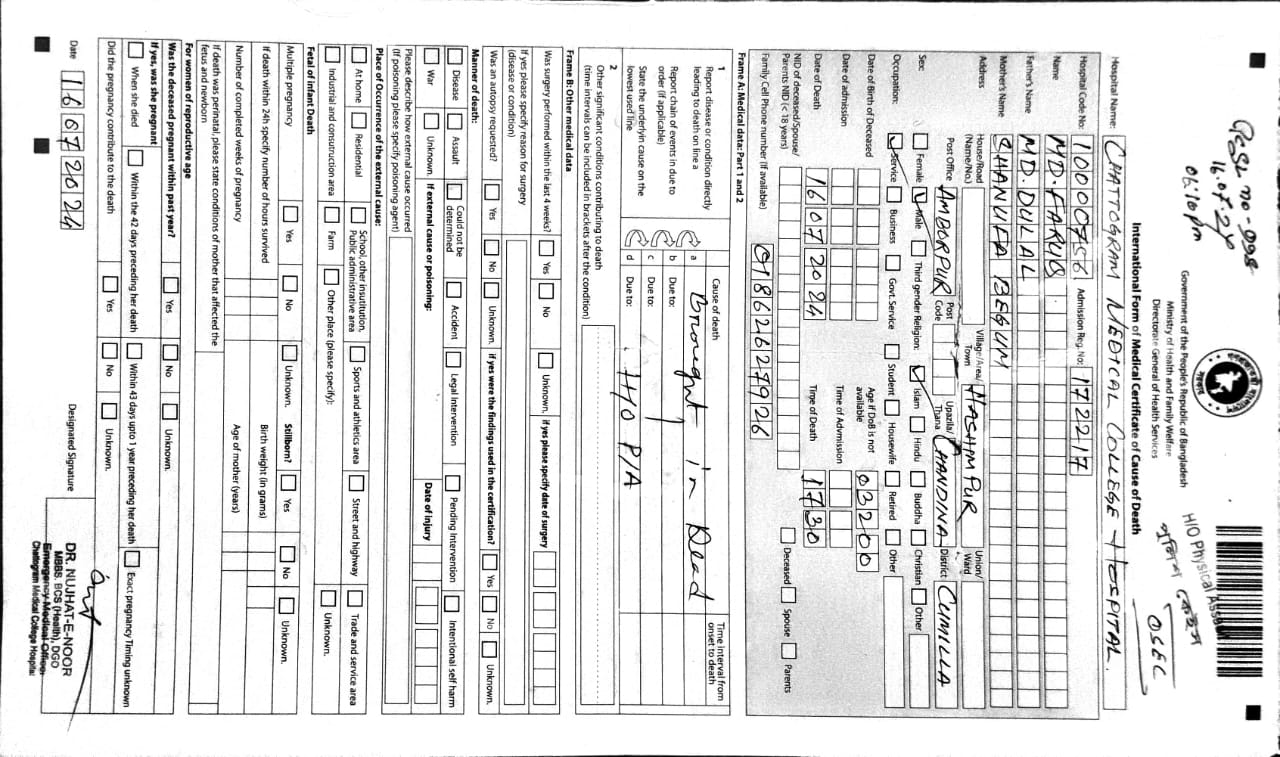 Government of the People's Republic of Bangladesh
Ministry of Health and Family Welfare
Directorate General of Health Services
16.07.24
06:10 pm
H/O Physical Assault
OSEC
International Form of Medical Certificate of Cause of Death
Hospital Name: CHATTOGRAM MEDICAL COLLEGE HOSPITAL.
Hospital Code No: 10000756 Admission Reg. No: 172217
Name MD. FARUQ
Father's Name MD. DULAL
Mother's Name CHANUFA BEGUM
Address House/Road (Name/No.) Village/Area/Town HASHIMPUR Union/Ward
Post Office AMBORPUR Post Code Upazila/Thana CHANDINA District CUMILLA
Sex: Female Male Third gender Religion: Islam Hindu Buddha Christian Other
Occupation: Service Business Govt. Service Student Housewife Retired Other
Date of Birth of deceased Age if DoB is not available 03200
Date of admission Time of Advmission
Date of Death: 16072024 Time of Death 1730
NID of deceased/Spouse/Parents NID (< 18 years) Deceased Spouse Parents
Family Cell Phone number (if available) 01862627926
Frame A: Medical data: Part 1 and 2
1 Report disease or condition directly leading to death on line a
Report chain of events in due to order (if applicable)
State the underlyin cause on the lowest used line
Cause of death Time interval from onset to death
a Brought in Dead
b Due to:
c Due to:
d Due to: H/O P/A
2 Other significant conditions contributing to death
(time intervals can be included in brackets after the condition)
Frame B: Other medical data
Was surgery performed within the last 4 weeks? Yes No Unknown. if yes please specify date of surgery
If yes please specify reason for surgery (disease or condition)
Was an autopsy requested? Yes No Unknown. if yes were the findings used in the certification? Yes No Unknown.
Manner of death:
Disease Assault Could not be determined Accident Legal Intervention Pending Intervention Intentional self harm
War Unknown. If external cause or poisoning: Date of injury
Please describe how external cause occurred
(If poisoning please specify poisoning agent)
Place of Occurrence of the external cause:
At home Residential School, other institution, Public administrative area Sports and athletics area Street and highway Trade and service area
Industrial and consruction area Farm Other place (please specify): Unknown.
Fetal of Infant Death
Multiple pregnancy Yes No Unknown. Stillborn? Yes No Unknown.
If death within 24h specify number of hours survived Birth weight (in grams)
Number of completed weeks of pregnancy Age of mother (years)
If death was perinatal, please state conditions of mother that affected the fetus and newborn
For women of reproductive age
Was the deceased pregnant within past year? Yes No Unknown.
If yes, was she pregnant
When she died Within the 42 days preceding her death Within 43 days upto 1 year preceding her death Exact pregnancy Timing unknown
Did the pregnancy contribute to the death Yes No Unknown.
Date 16072024 Designated Signature
DR. NUJHAT-E-NOOR
MBBS, BCS (Health), DGO
Emergency Medical Officer
Chattogram Medical College Hospital